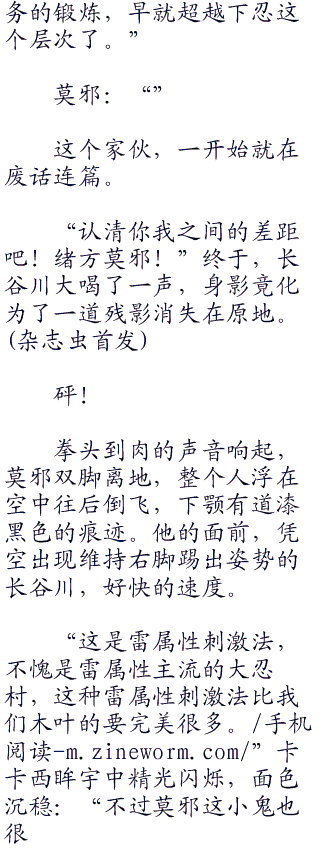 务的锻炼，早就超越下忍这
个层次了。”
莫邪：“”
这个家伙，一开始就在
废话连篇。
“认清你我之间的差距
吧！绪方莫邪！”终于，长
谷川大喝了一声，身影竟化
为了一道残影消失在原地。
(杂志虫首发)
砰！
拳头到肉的声音响起，
莫邪双脚离地，整个人浮在
空中往后倒飞，下颚有道漆
黑色的痕迹。他的面前，凭
空出现维持右脚踢出姿势的
长谷川，好快的速度。
“这是雷属性刺激法，
不愧是雷属性主流的大忍
村，这种雷属性刺激法比我
们木叶的要完美很多。/手机
阅读-m.zineworm.com/”卡
卡西眸宇中精光闪烁，面色
沉稳：“不过莫邪这小鬼也
很